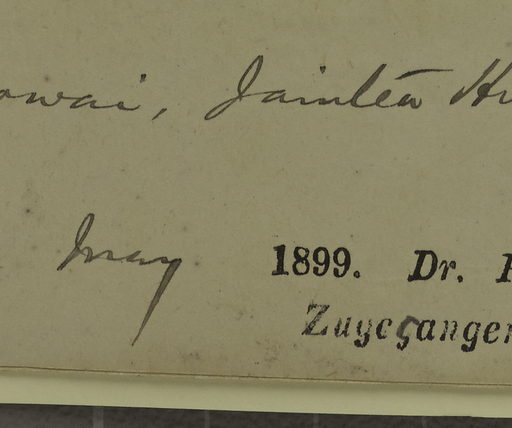 owai, Jaintea
May 1899. Dr.
Zugegangen